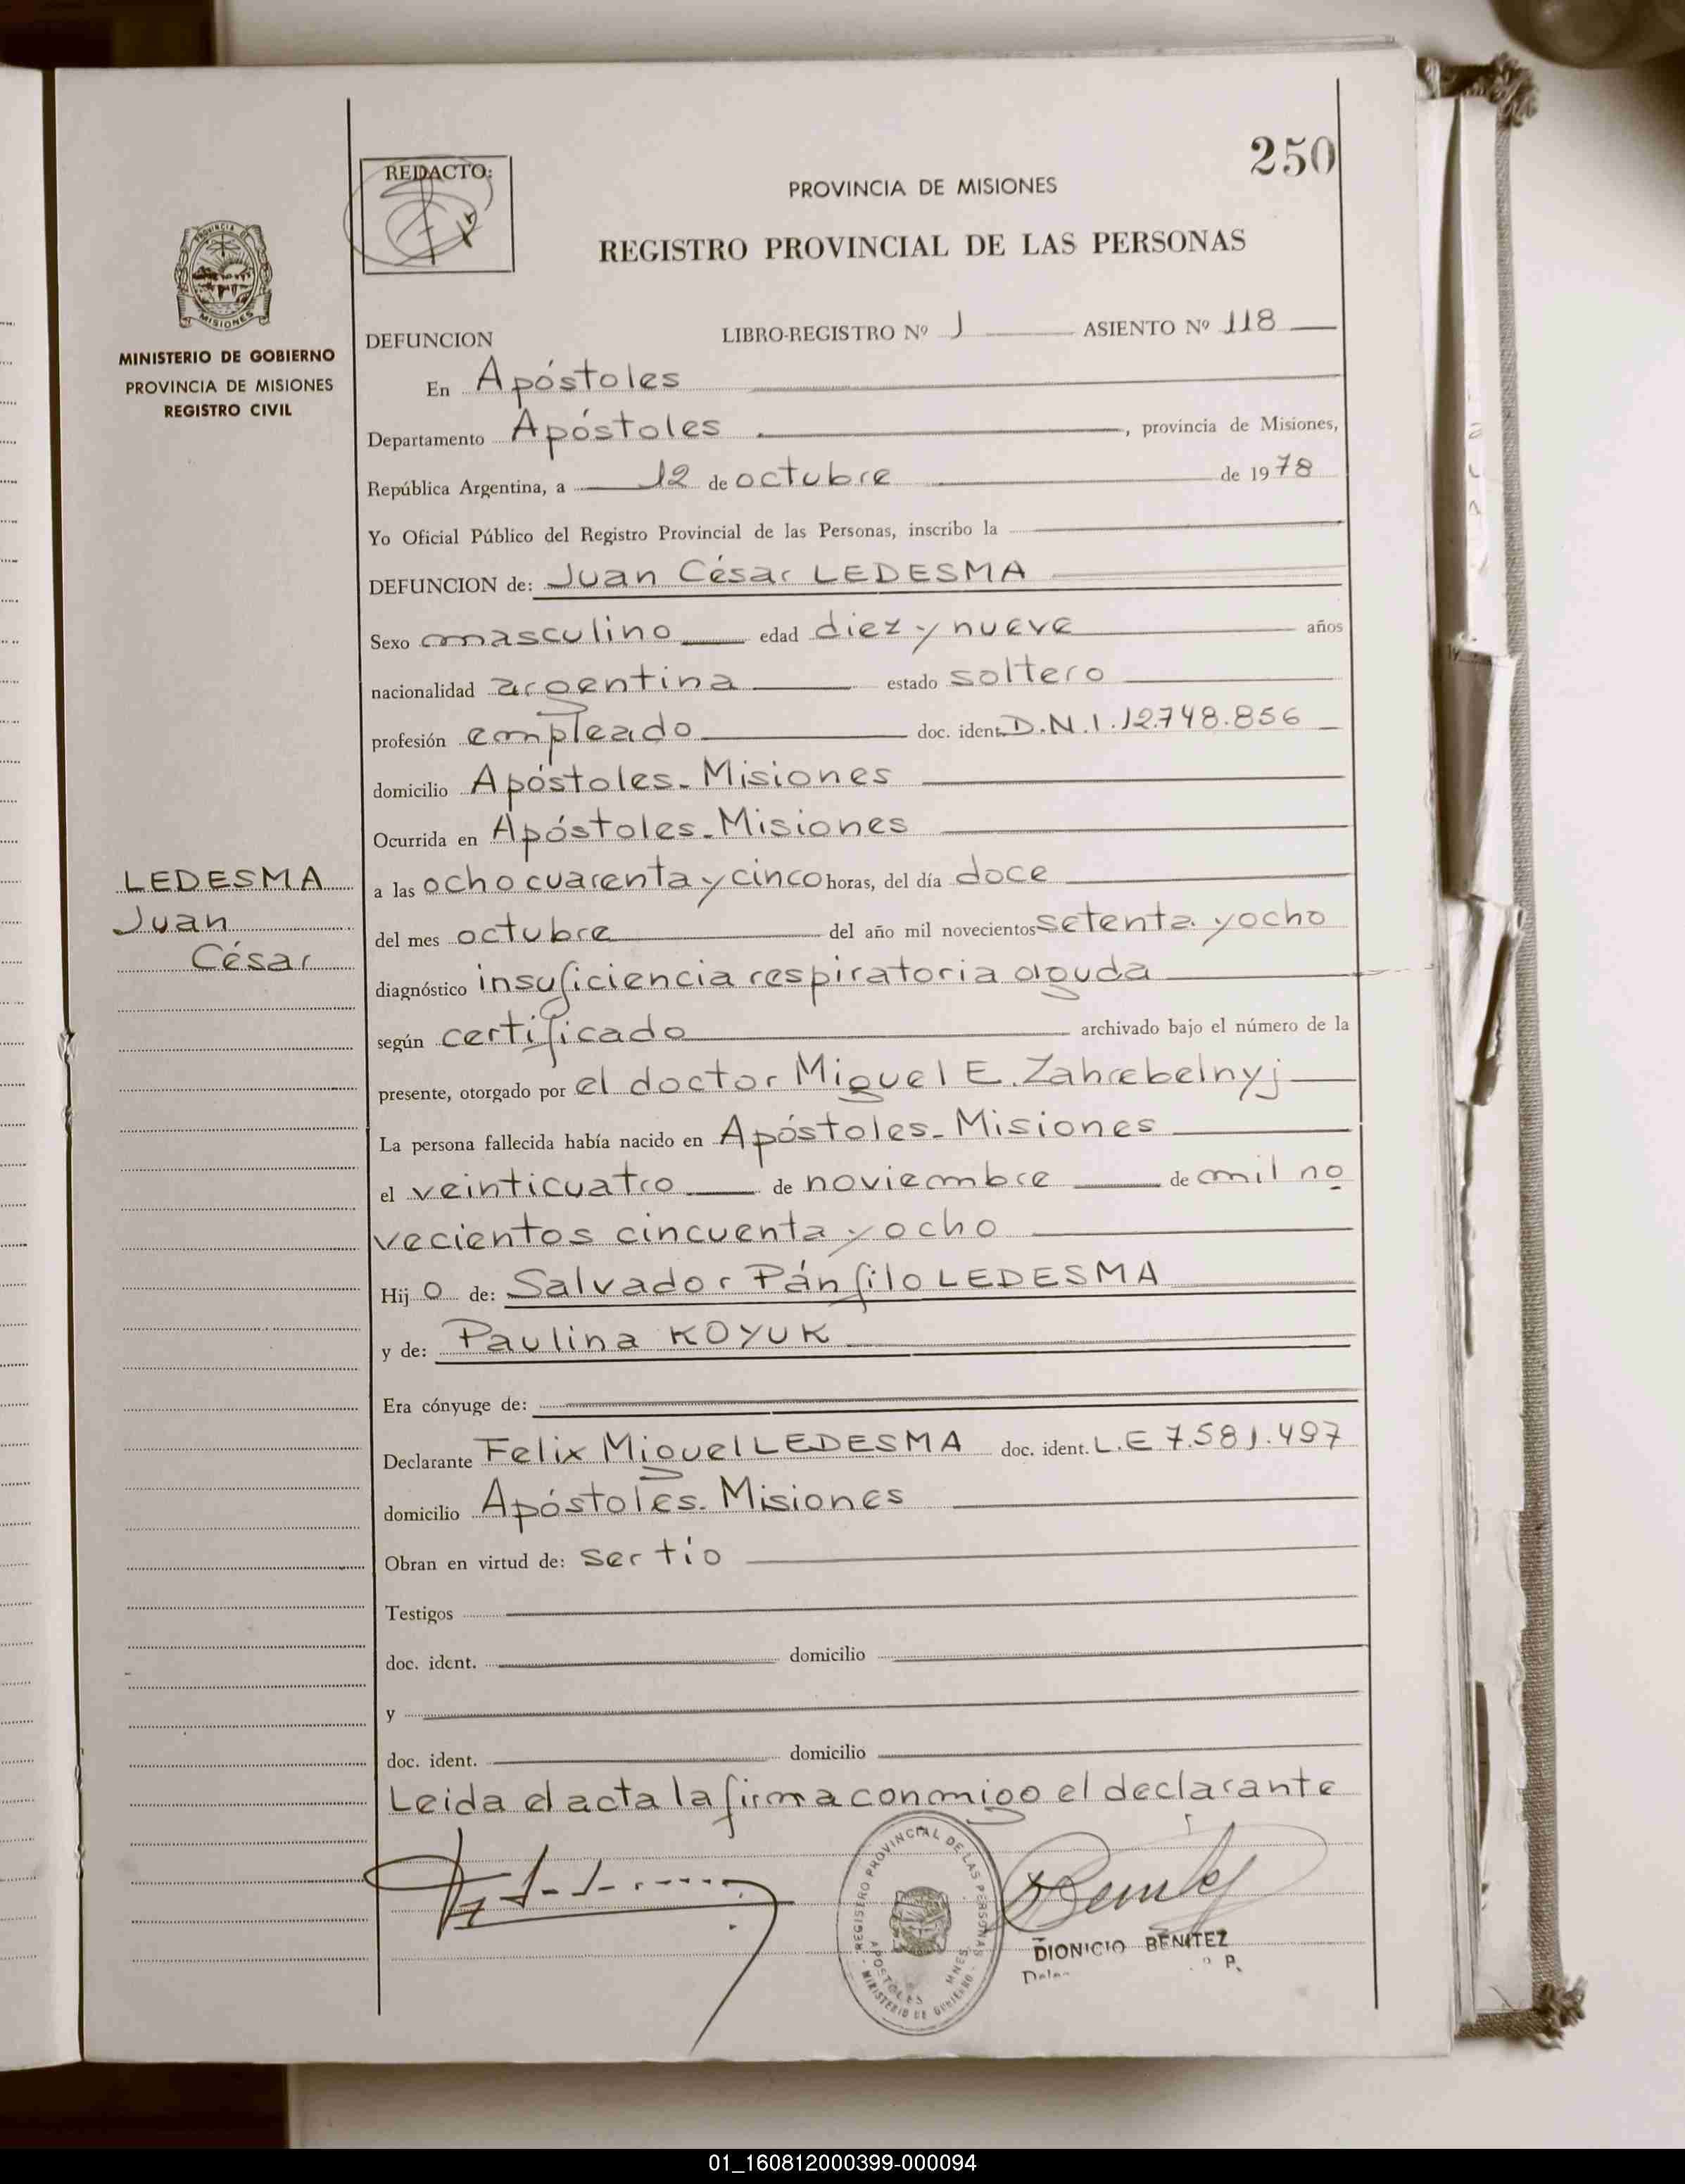 250
REDACTO:
PROVINCIA DE MISIONES
REGISTRO PROVINCIAL DE LAS PERSONAS
PROVINCIA DE
MISIONES
MINISTERIO DE GOBIERNO
PROVINCIA DE MISIONES
REGISTRO CIVIL
DEFUNCION LIBRO-REGISTRO Nº 1 ASIENTO Nº 118
En Apóstoles
Departamento Apóstoles, provincia de Misiones,
República Argentina, a 12 de octubre de 1978
Yo Oficial Público del Registro Provincial de las Personas, inscribo la
DEFUNCION de: Juan César LEDESMA
Sexo masculino edad diez y nueve años
nacionalidad argentina estado soltero
profesión empleado doc. ident. D.N.I. 12.748.856
domicilio Apóstoles. Misiones
Ocurrida en Apóstoles. Misiones
LEDESMA
Juan
César
a las ocho cuarenta y cinco horas, del día doce
del mes octubre del año mil novecientos setenta y ocho
diagnóstico insuficiencia respiratoria aguda
según certificado archivado bajo el número de la
presente, otorgado por el doctor Miguel E. Zahrebelnyj
La persona fallecida había nacido en Apóstoles. Misiones
el veinticuatro de noviembre de mil no
vecientos cincuenta y ocho
Hijo de: Salvador Pánfilo LEDESMA
y de: Paulina KOYUK
Era cónyuge de:
Declarante Felix Miguel LEDESMA doc. ident. L.E 7.581.497
domicilio Apóstoles. Misiones
Obran en virtud de: ser tío
Testigos
doc. ident. domicilio
y
doc. ident. domicilio
Leida el acta la firma conmigo el declarante
REGISTRO PROVINCIAL DE LAS PERSONAS
APOSTOLES MNES.
MINISTERIO DE GOBIERNO
DIONICIO BENITEZ
01_160812000399-000094